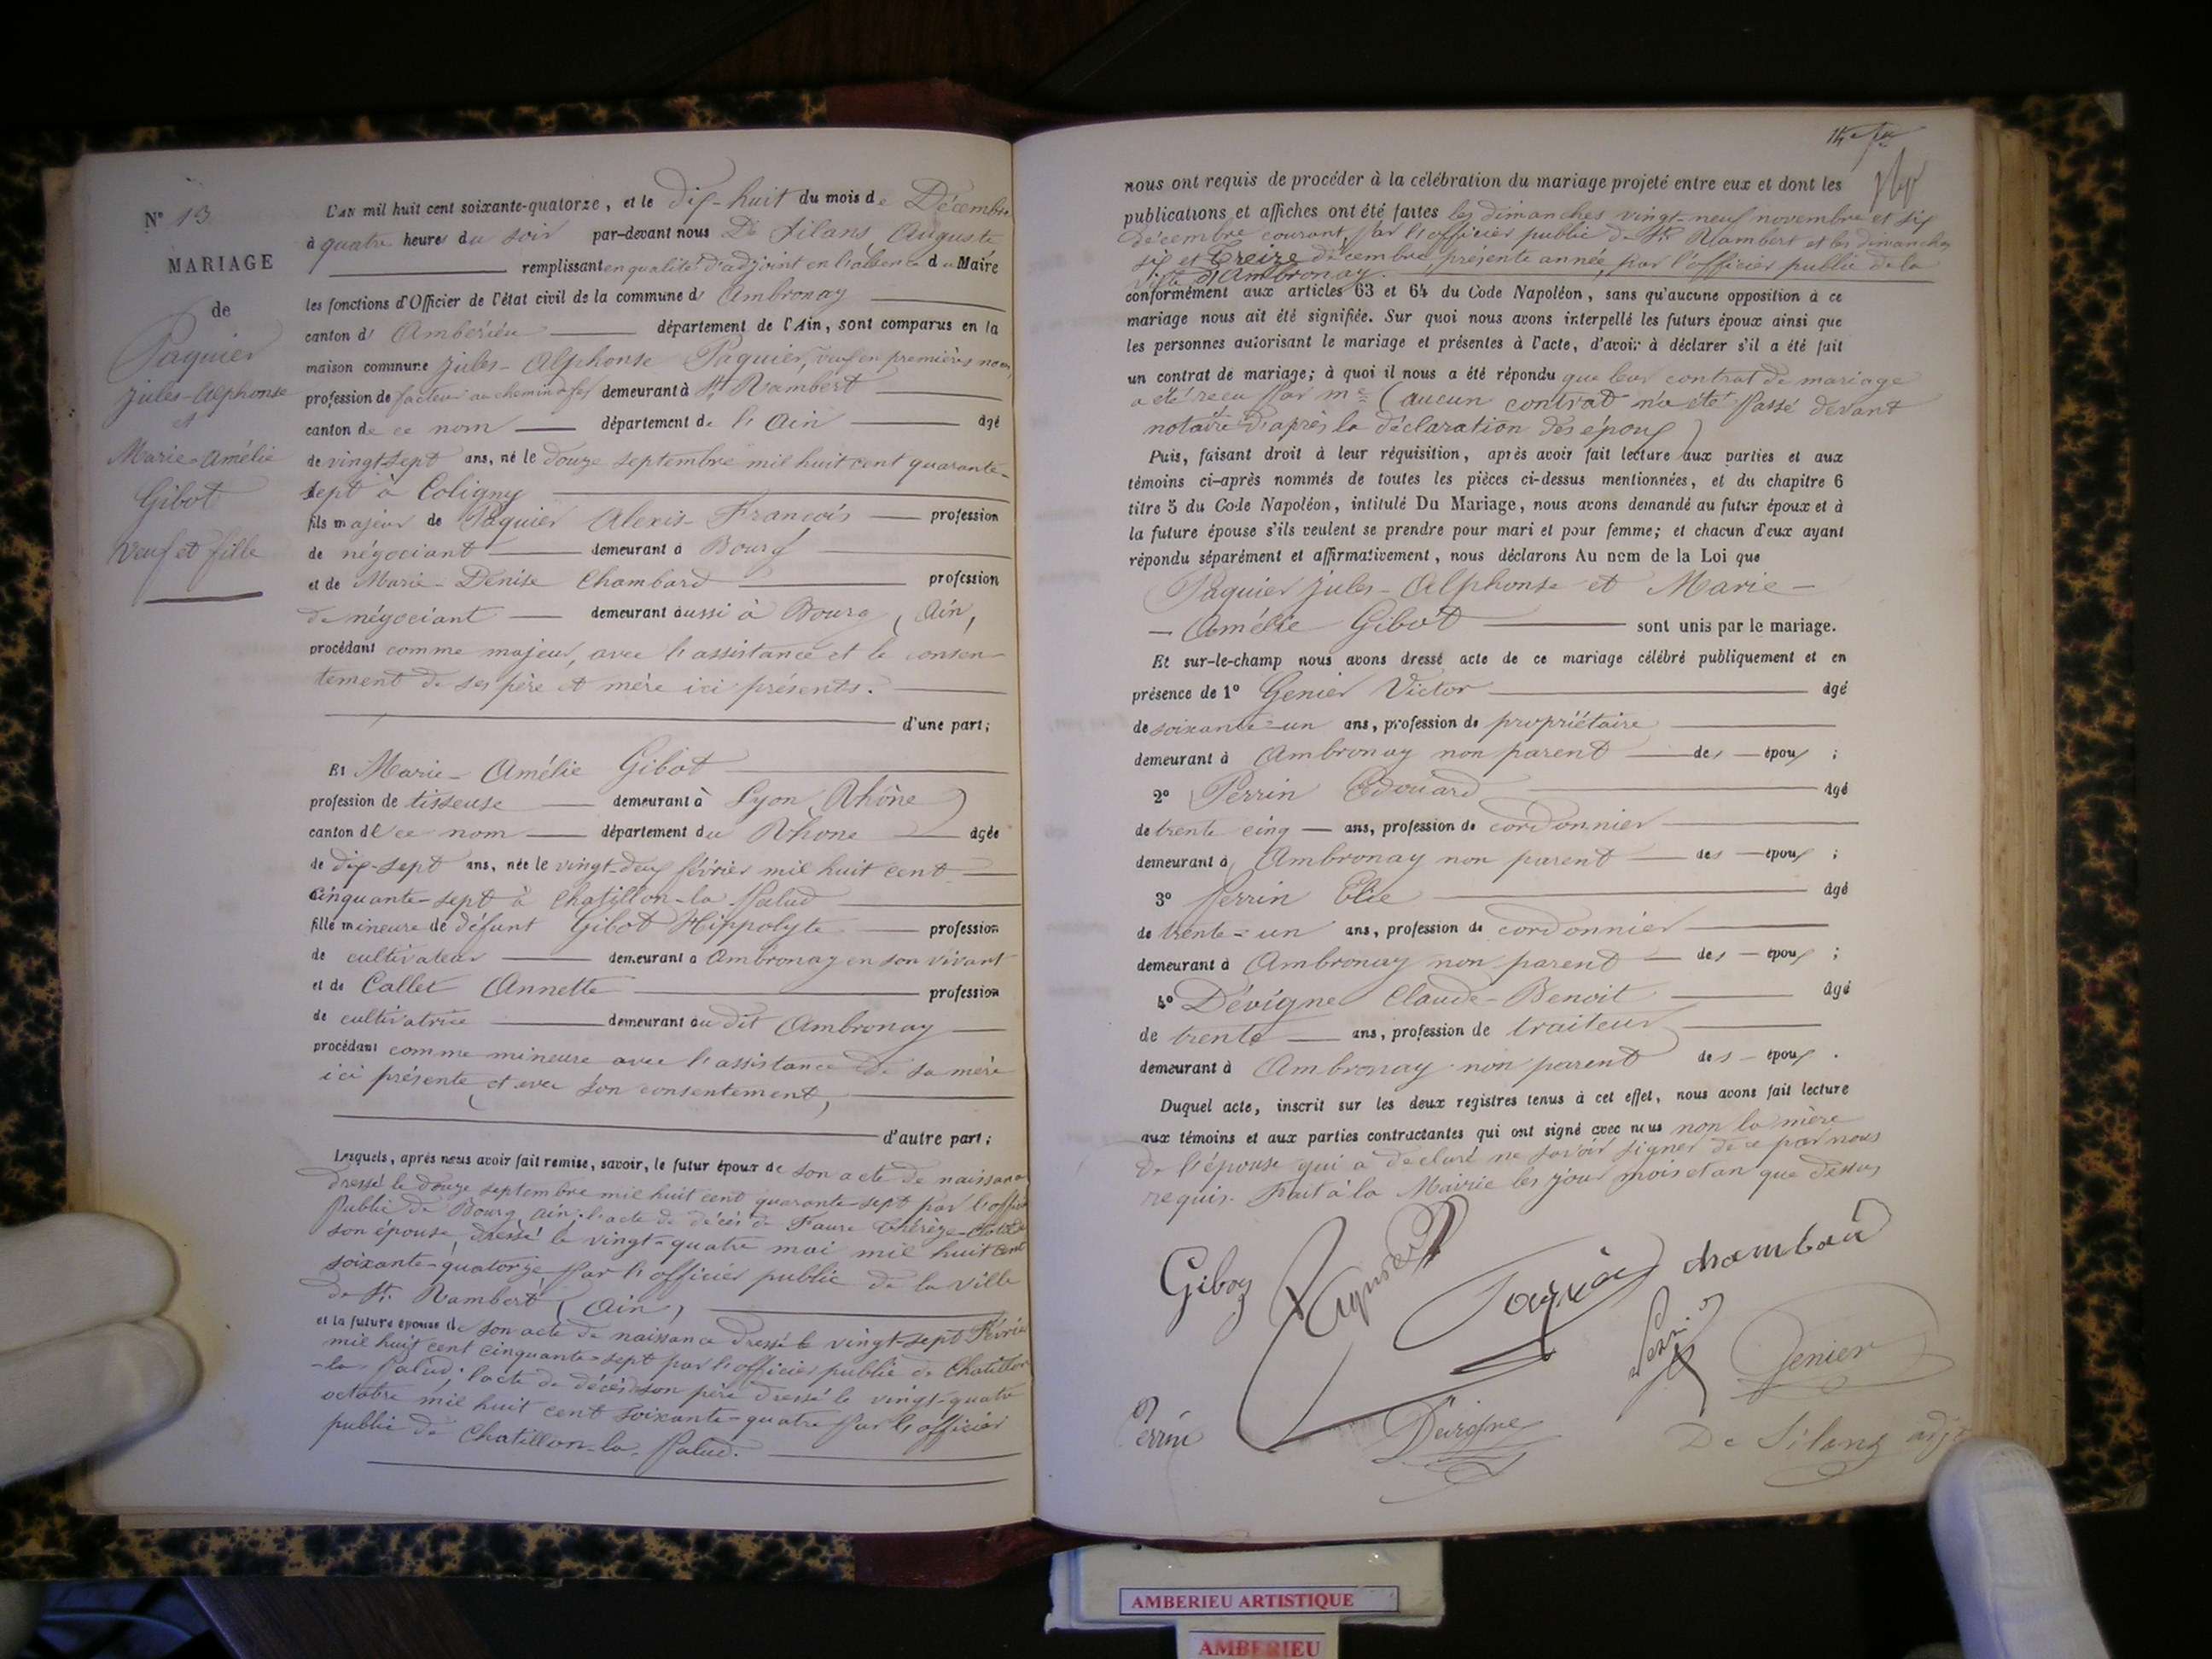 N° 13
MARIAGE
de
Paquier
Jules-Alphonse
et
Marie-Amélie
Gibot
Veuf et fille
L'AN mil huit cent soixante-quatorze, et le dix-huit du mois de Décembre
à quatre heures du soir par-devant nous De Silans, Auguste
remplissant en qualité d'adjoint en l'absence du Maire
les fonctions d'Officier de l'état civil de la commune d' Ambronay
canton d' Ambérieu département de l'Ain, sont comparus en la
maison commune Jules-Alphonse Paquier, veuf en premières noces,
profession de facteur au chemin de fer demeurant à St Rambert
canton de ce nom département de l'Ain âgé
de vingt sept ans, né le douze septembre mil huit cent quarante-
sept à Coligny
fils majeur de Paquier Alexis-François profession
de négociant demeurant à Bourg
et de Marie-Denise Chambard profession
de négociant demeurant aussi à Bourg (Ain)
procédant comme majeur, avec l'assistance et le consen-
tement de ses père et mère ici présents.
d'une part;
Et Marie-Amélie Gibot
profession de tisseuse demeurant à Lyon (Rhône)
canton de ce nom département du Rhône âgée
de dix-sept ans, née le vingt-deux février mil huit cent
cinquante-sept à Chatillon-la-Palud
fille mineure de défunt Gibot Hippolyte profession
de cultivateur demeurant à Ambronay en son vivant
et de Callet Annette profession
de cultivatrice demeurant au dit Ambronay
procédant comme mineure avec l'assistance de sa mère
ici présente et avec son consentement,
d'autre part;
Lesquels, après nous avoir fait remise, savoir, le futur époux de son acte de naissance
dressé le douze septembre mil huit cent quarante-sept par l'officier
public de Bourg Ain; l'acte de décès de Faure Thérèze-
son épouse, dressé le vingt-quatre mai mil huit cent
soixante-quatorze par l'officier public de la ville
de St. Rambert (Ain)
et la future épouse de son acte de naissance dressé le vingt-sept Février
mil huit cent cinquante-sept par l'officier public de Chatillon
-la-Palud; l'acte de décès de son père dressé le vingt-quatre
octobre mil huit cent soixante-quatre par l'officier
public de Chatillon-la-Palud.
nous ont requis de procéder à la célébration du mariage projeté entre eux et dont les
publications et affiches ont été faites les dimanches vingt-neuf novembre et six
décembre courant par l'officier public de St. Rambert et les dimanches
six et Treize décembre présente année, par l'officier public de la
ville d'Ambronay.
conformément aux articles 63 et 64 du Code Napoléon, sans qu'aucune opposition à ce
mariage nous ait été signifiée. Sur quoi nous avons interpellé les futurs époux ainsi que
les personnes autorisant le mariage et présentes à l'acte, d'avoir à déclarer s'il a été fait
un contrat de mariage; à quoi il nous a été répondu que leur contrat de mariage
a été reçu par me (aucun contrat n'a été passé devant
notaire d'après la déclaration des époux)
Puis, faisant droit à leur réquisition, après avoir fait lecture aux parties et aux
témoins ci-après nommés de toutes les pièces ci-dessus mentionnées, et du chapitre 6
titre 5 du Code Napoléon, intitulé Du Mariage, nous avons demandé au futur époux et à
la future épouse s'ils veulent se prendre pour mari et pour femme; et chacun d'eux ayant
répondu séparément et affirmativement, nous déclarons Au nom de la Loi que
Paquier Jules-Alphonse et Marie-
-Amélie Gibot sont unis par le mariage.
Et sur-le-champ nous avons dressé acte de ce mariage célébré publiquement et en
présence de 1° Genier Victor âgé
de soixante-un ans, profession de propriétaire
demeurant à Ambronay non parent des époux;
2° Perrin Edouard âgé
de trente cinq ans, profession de cordonnier
demeurant à Ambronay non parent des époux;
3° Perrin Elie âgé
de trente-un ans, profession de cordonnier
demeurant à Ambronay non parent des époux;
4° Dévigne Claude-Benoit âgé
de trente ans, profession de traiteur
demeurant à Ambronay non parent des époux.
Duquel acte, inscrit sur les deux registres tenus à cet effet, nous avons fait lecture
aux témoins et aux parties contractantes qui ont signé avec nous non la mère
de l'épouse qui a déclaré ne savoir signer de ce par nous
requis. Fait à la Mairie les jour mois et an que dessus
Giboz Paquier Paquier chambard
Perrin Genier
Perrin Devigne De Silans adjt
AMBERIEU ARTISTIQUE
AMBERIEU